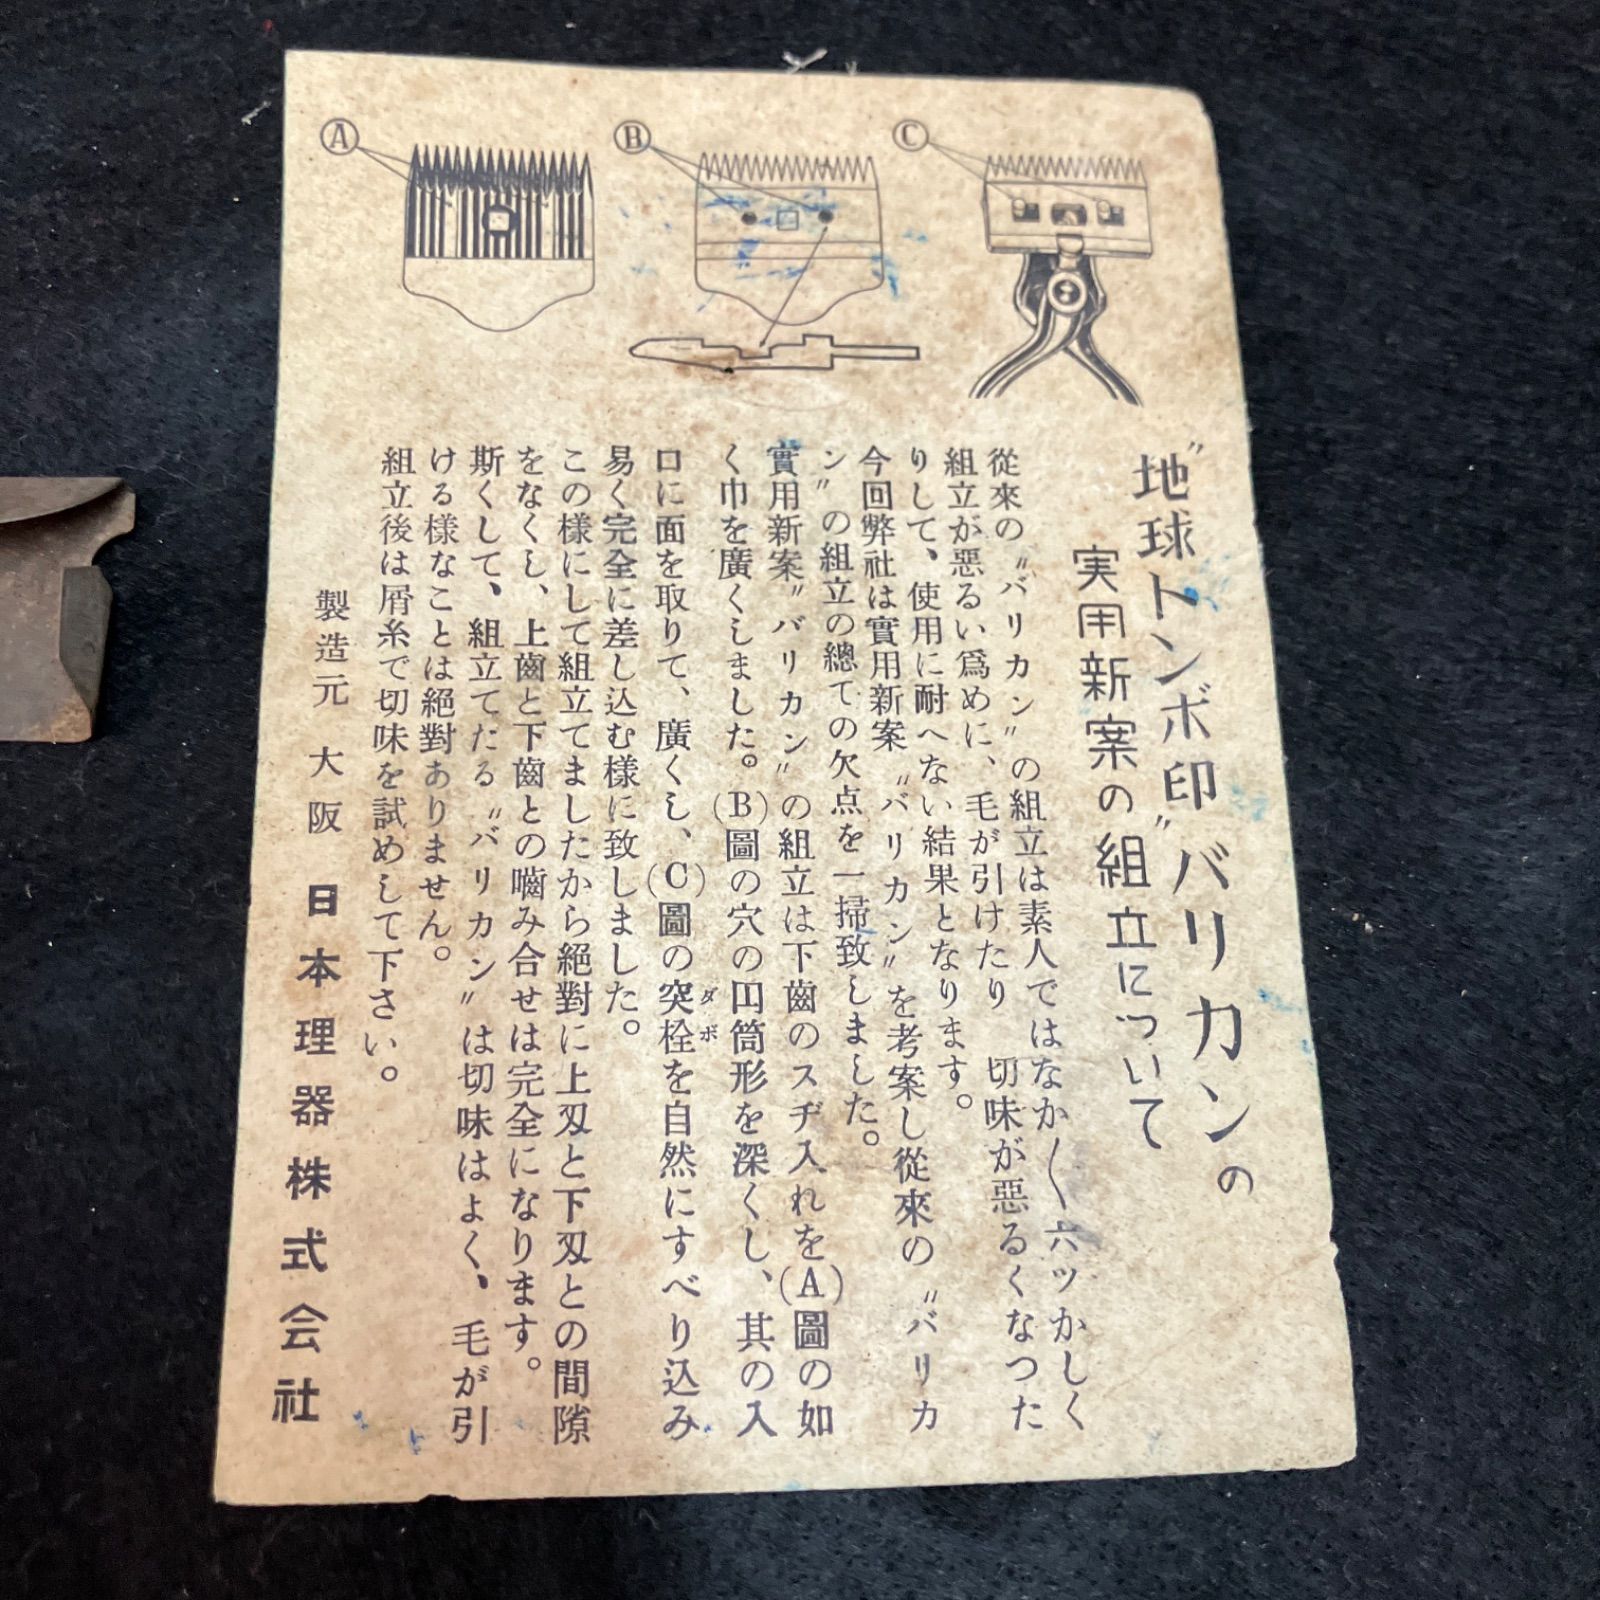 Ⓐ
Ⓑ
Ⓒ
〝地球トンボ印〟バリカンの
実用新案の組立について
従來の〝バリカン〟の組立は素人ではなか〳〵六ツかしく
組立が惡るい爲めに、毛が引けたり 切味が惡るくなつた
りして、使用に耐へない結果となります。
今回弊社は實用新案〝バリカン〟を考案し從來の〝バリカ
ン〟の組立の總ての欠点を一掃致しました。
實用新案〝バリカン〟の組立は下齒のスヂ入れを(A)圖の如
く巾を廣くしました。(B)圖の穴の円筒形を深くし、其の入
口に面を取りて、廣くし、(C)圖の突栓を自然にすべり込み
ダボ
易く完全に差し込む樣に致しました。
この樣にして組立てましたから絕對に上刄と下刄との間隙
をなくし、上齒と下齒との嚙み合せは完全になります。
斯くして、組立てたる〝バリカン〟は切味はよく、毛が引
ける樣なことは絕對ありません。
組立後は屑糸で切味を試めして下さい。
製造元 大阪 日本理器株式会社